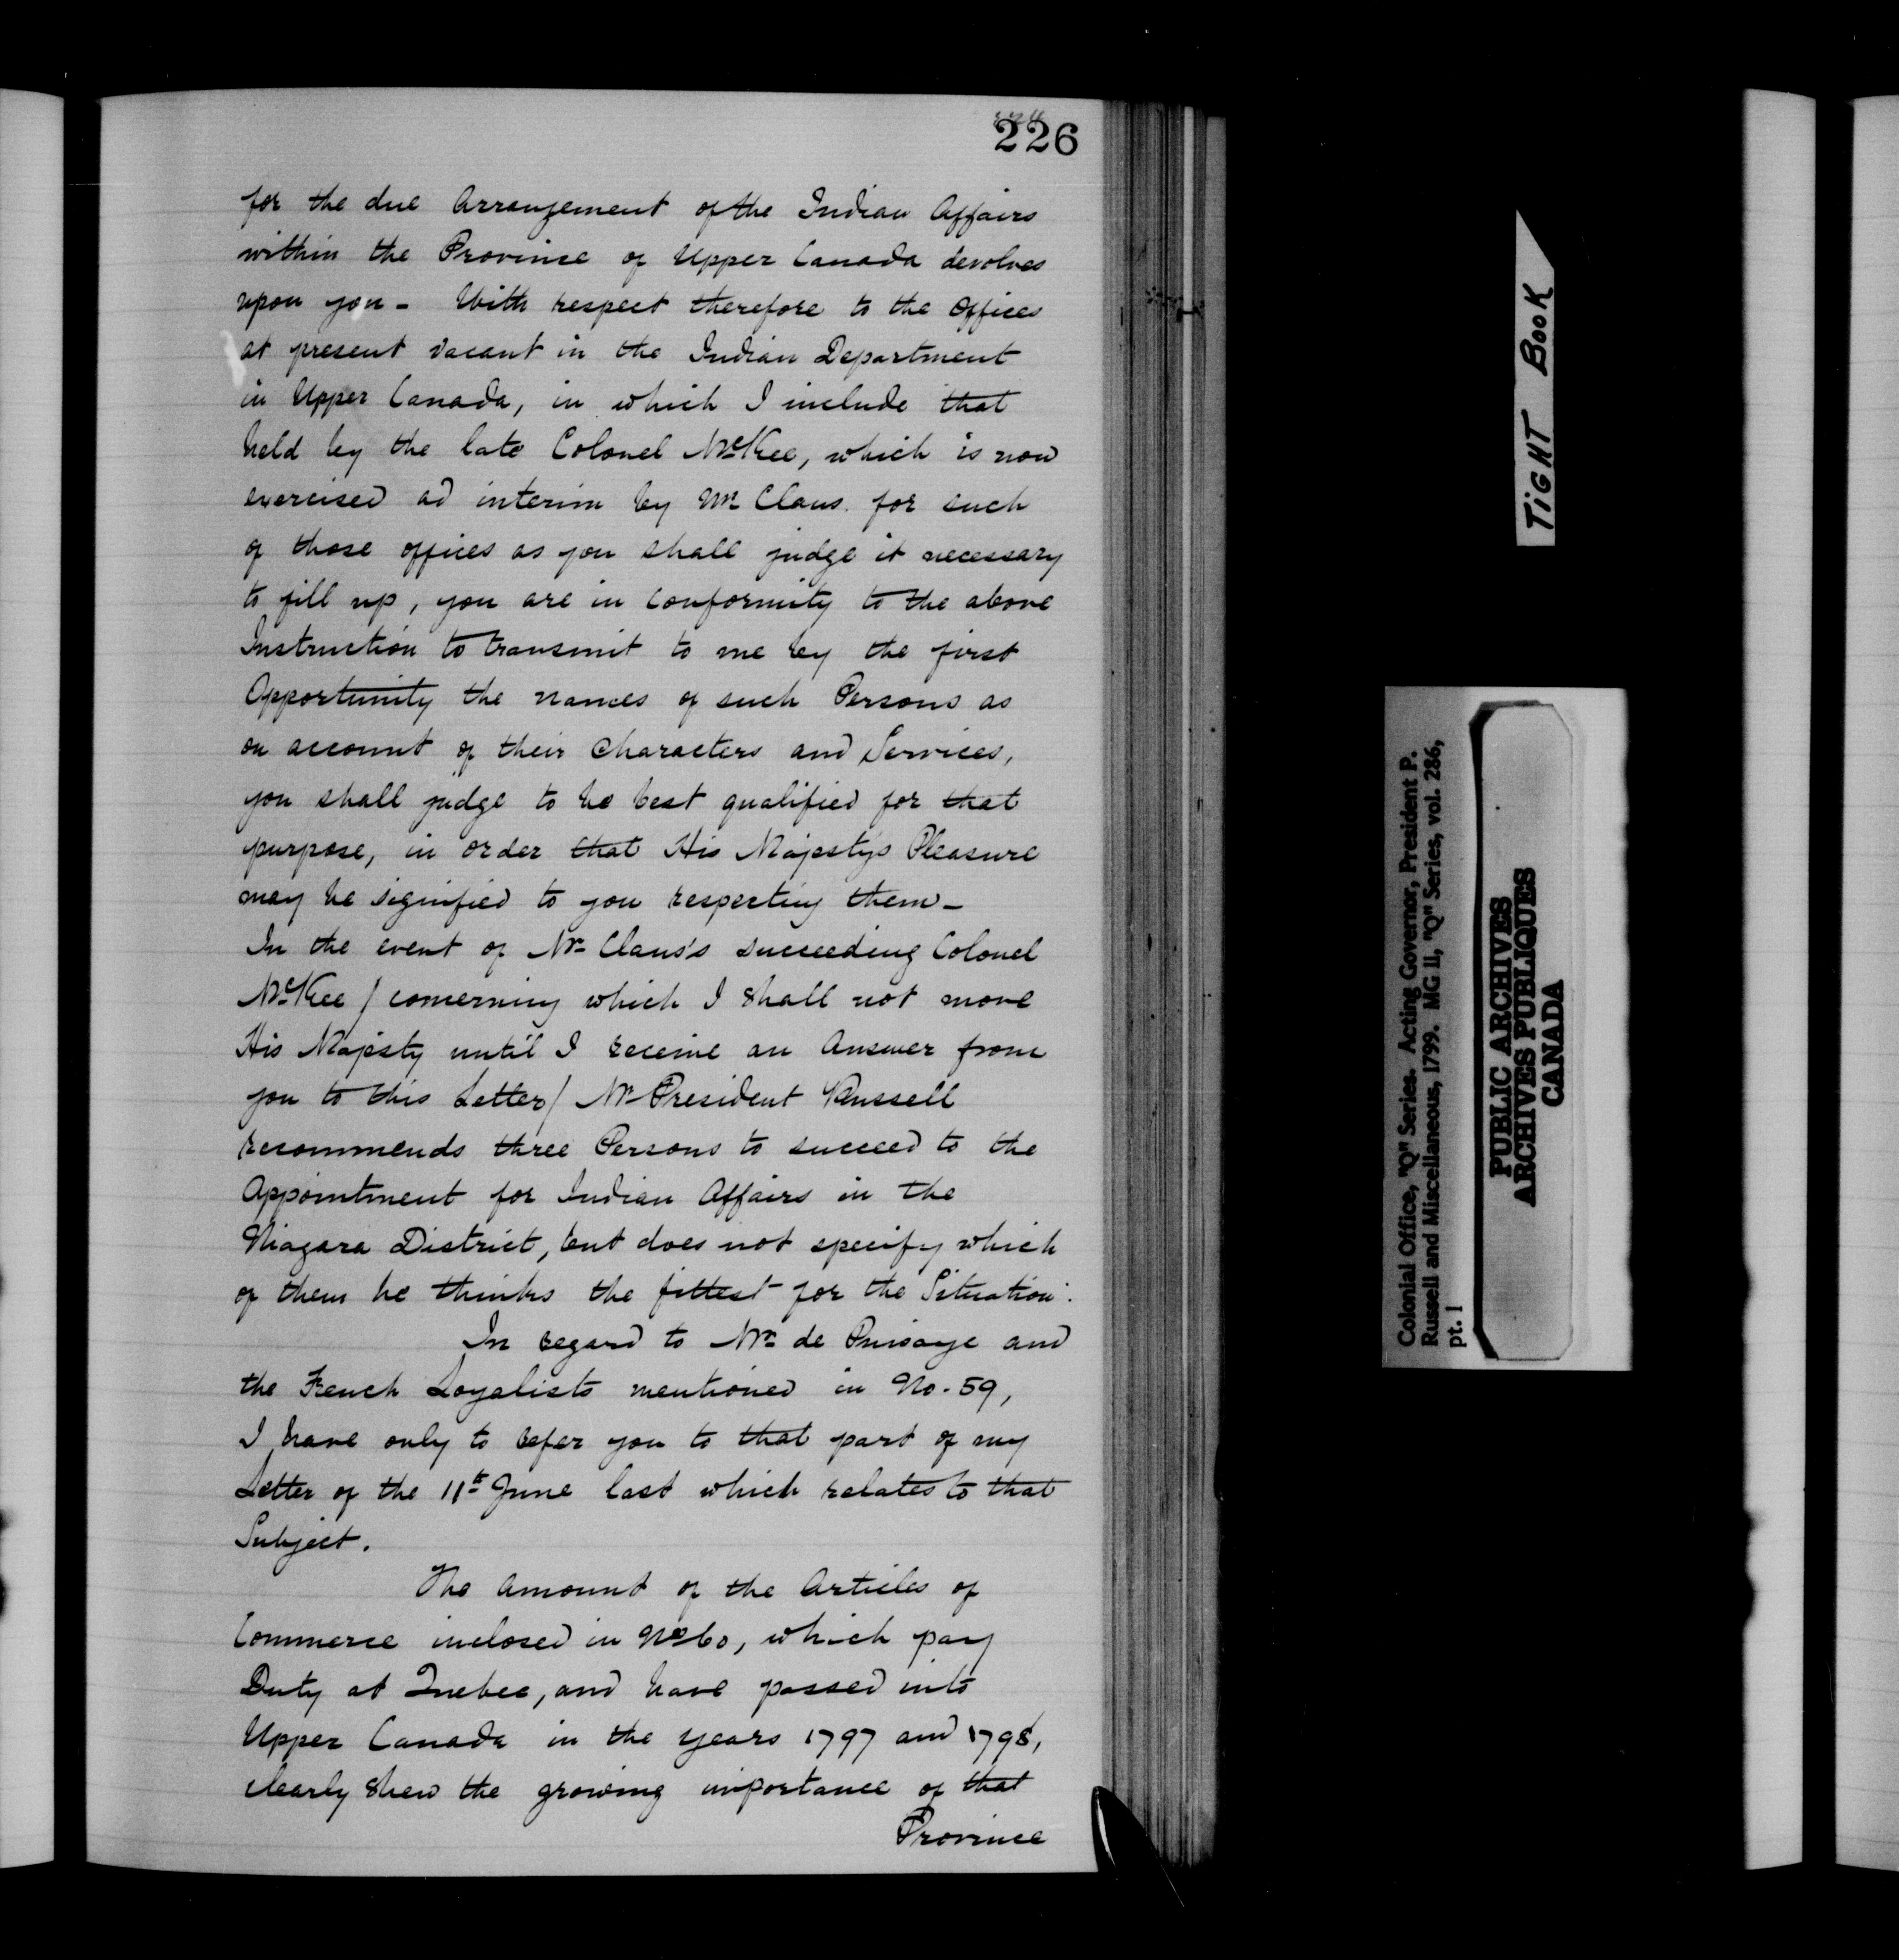 226
for the due Arrangement of the Indian Affairs
within the Province of Upper Canada devolves
upon you - With respect therefore to the Offices
at present vacant in the Indian Department
in Upper Canada, in which I include that
held by the late Colonel McKee, which is now
exercised ad interim by Mr Claus. for such
of those offices as you shall judge it necessary
to fill up, you are in conformity to the above
Instruction to transmit to me by the first
Opportunity the names of such Persons as
on account of their Characters and Services,
you shall judge to be best qualified for that
purpose, in order that His Majesty's Pleasure
may be signified to you respecting them -
In the event of Mr Claus's succeeding Colonel
McKee / concerning which I shall not move
His Majesty until I receive an Answer from
you to this Letter / Mr President Russell
recommends three Persons to succeed to the
Appointment for Indian Affairs in the
Niagara District, but does not specify which
of them he thinks the fittest for the Situation.
In regard to Mr de Puisaye and
the French Loyalists mentioned in No. 59,
I have only to refer you to that part of my
Letter of the 11th June last which relates to that
Subject.
The Amount of the Articles of
Commerce inclosed in No 60, which pay
Duty at Quebec, and have passed into
Upper Canada in the years 1797 and 1798,
clearly shew the growing importance of that
Province
TIGHT BOOK
Colonial Office, "Q" Series. Acting Governor, President P.
Russell and Miscellaneous, 1799. MG 11, "Q" Series, vol. 286,
pt. 1
PUBLIC ARCHIVES
ARCHIVES PUBLIQUES
CANADA